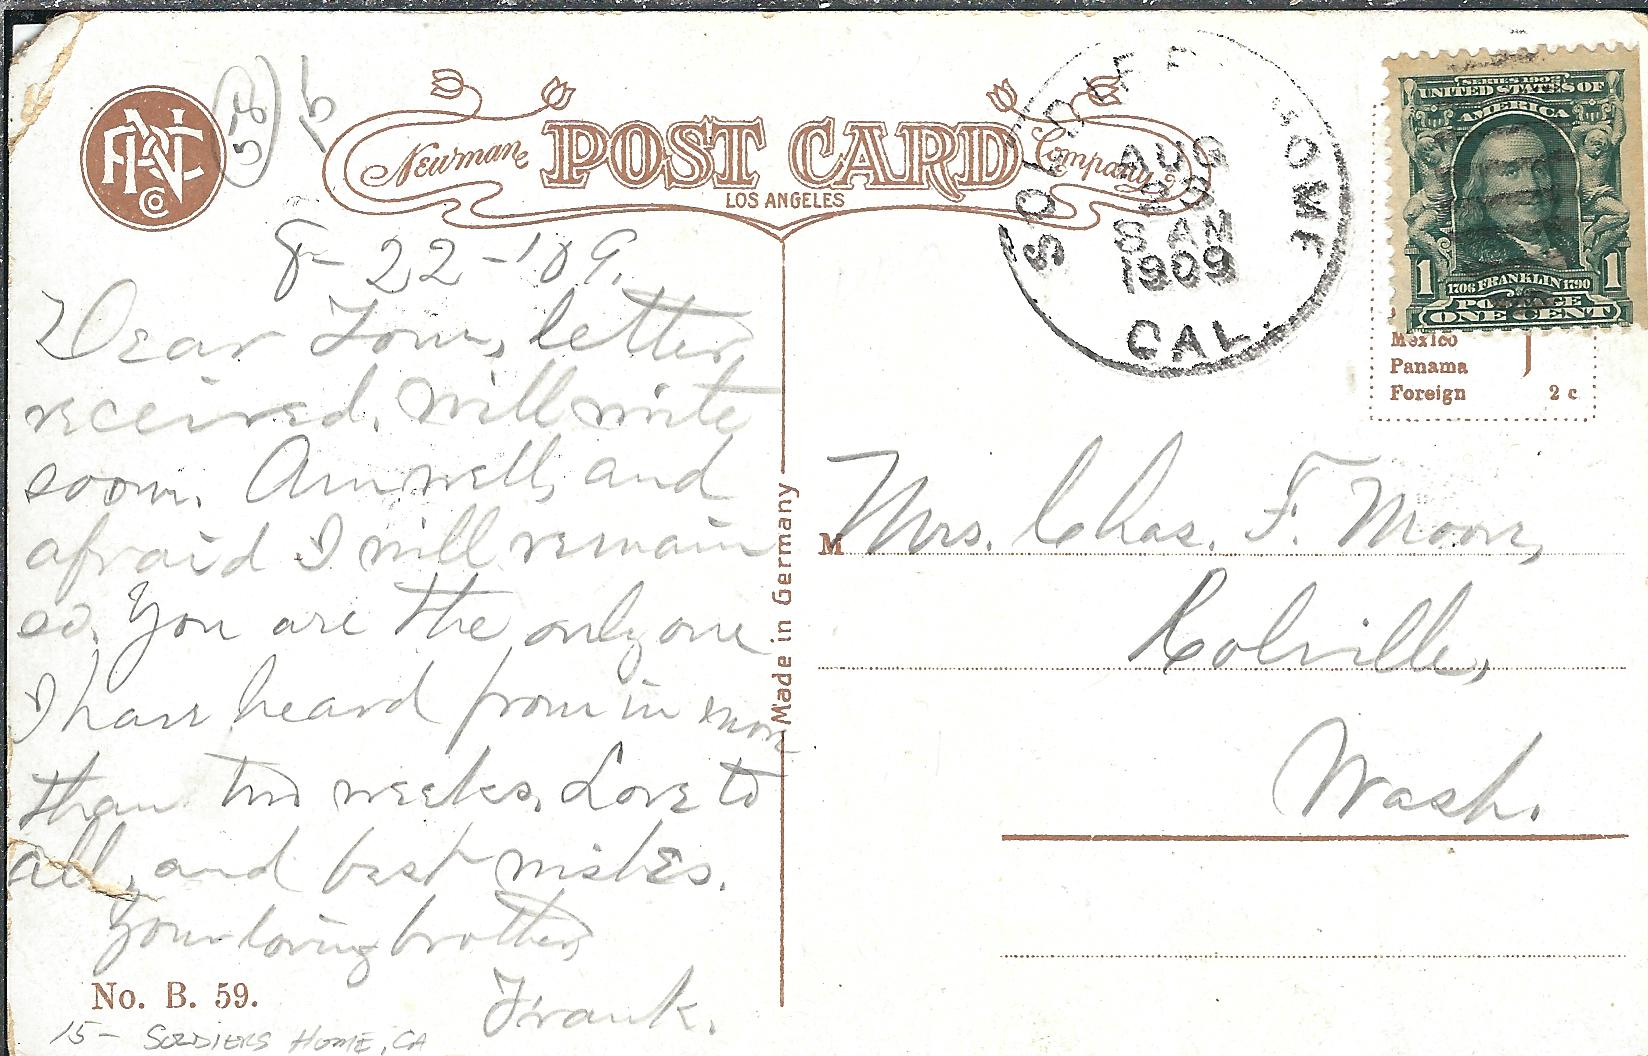 58
15
PNC
Co
Newman
POST CARD
Company
LOS ANGELES
SOLDIER HOME
AUG
8 AM
1909
CAL.
SERIES 1902
UNITED STATES OF
AMERICA
1706 FRANKLIN 1790
1 1
POSTAGE
ONE CENT
Mexico
Panama
Foreign 2 c
8-22-'09.
Dear Lou, letter
received. Will write
soon. Am well, and
afraid I will remain
so. You are the only one
I have heard from in more
than two weeks. Love to
all, and best wishes.
Your loving brother,
Frank.
Made in Germany
M Mrs. Chas. F. Moore,
Colville,
Wash.
No. B. 59.
15- SOLDIERS HOME, CA